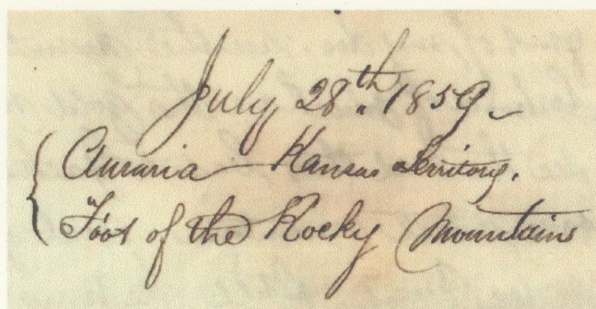 July 28.th 1859-
Auraria Kansas Territory.
Foot of the Rocky Mountains